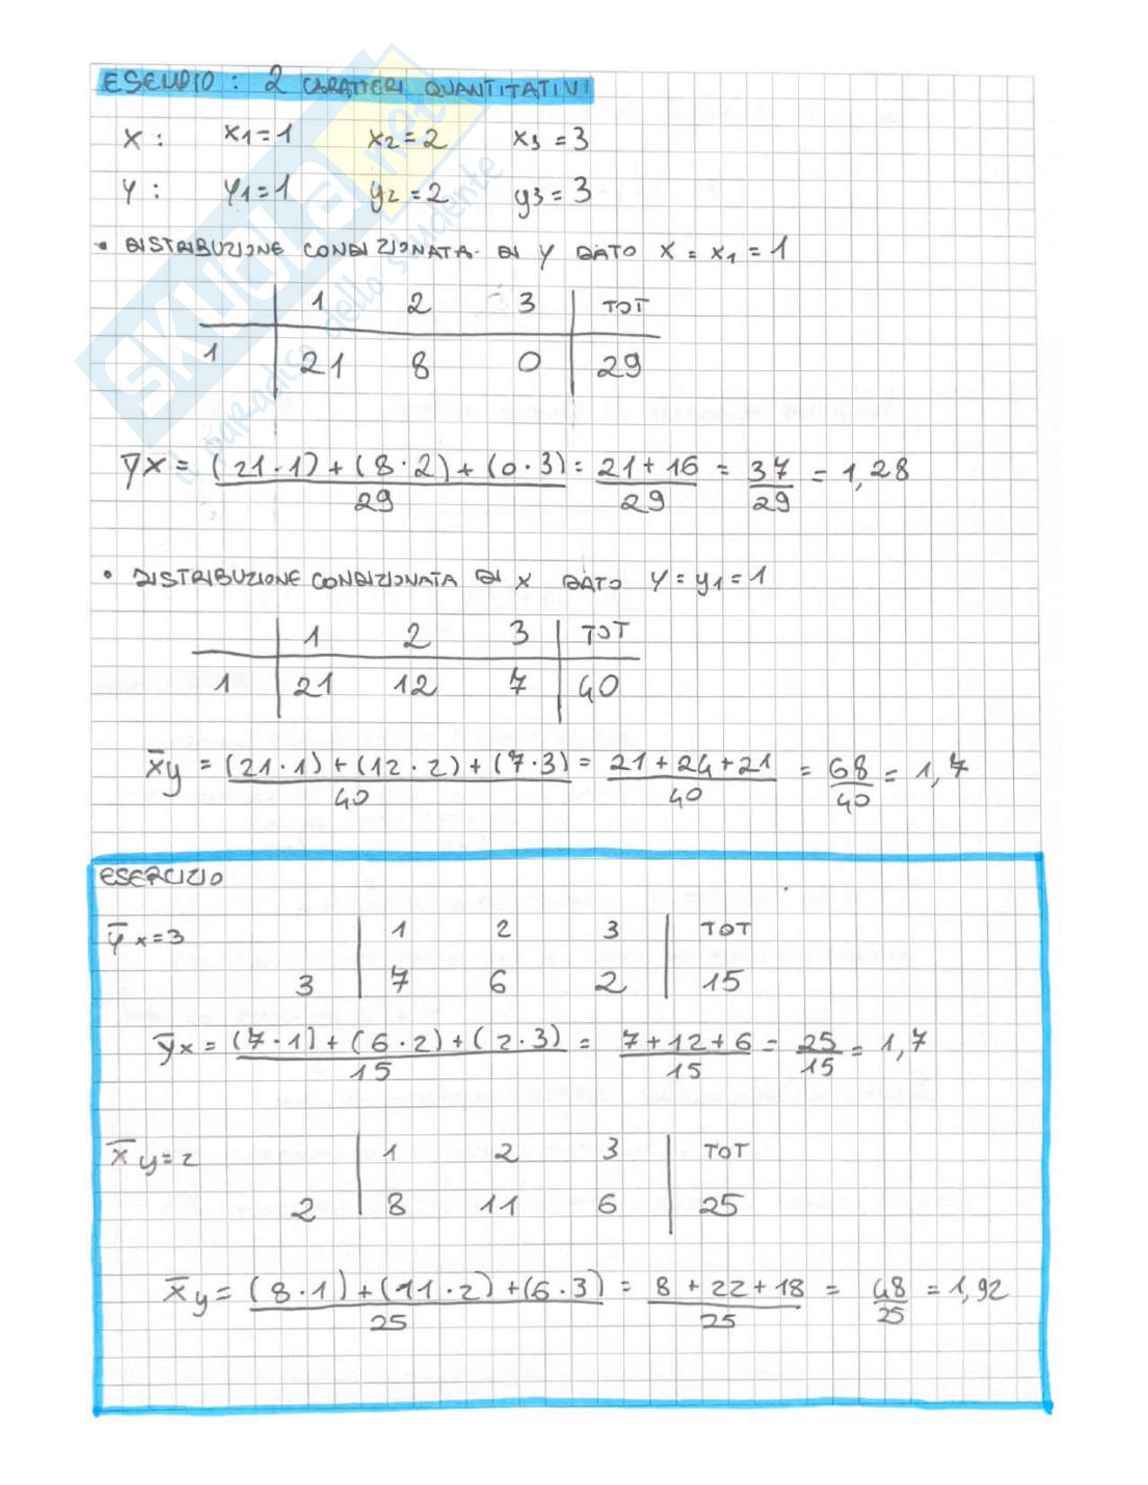 ESEMPIO: 2 CARATTERI QUANTITATIVI
X: x1=1 x2=2 x3=3
Y: y1=1 y2=2 y3=3
• DISTRIBUZIONE CONDIZIONATA DI Y DATO X = x1 = 1
1 2 3 TOT
1 21 8 0 29
ȳx = (21·1)+(8·2)+(0·3)/29 = 21+16/29 = 37/29 = 1,28
• DISTRIBUZIONE CONDIZIONATA DI X DATO Y=y1=1
1 2 3 TOT
1 21 12 7 40
x̄y = (21·1)+(12·2)+(7·3)/40 = 21+24+21/40 = 68/40 = 1,7
ESERCIZIO
ȳx=3 1 2 3 TOT
3 7 6 2 15
ȳx = (7·1)+(6·2)+(2·3)/15 = 7+12+6/15 = 25/15 = 1,7
x̄y=2 1 2 3 TOT
2 8 11 6 25
x̄y = (8·1)+(11·2)+(6·3)/25 = 8+22+18/25 = 48/25 = 1,92
SKUOLA.net
il paradiso dello studente